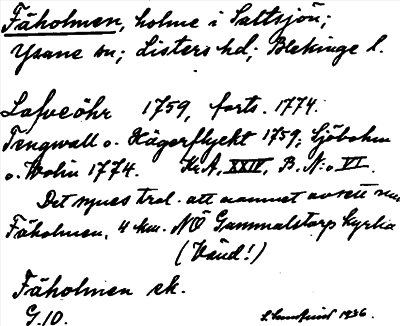 Fäholmen, holme i Saltsjön;
Ysane sn; Listers hd; Blekinge l.
Lafveöhr 1759, forts. 1774.
Tengwall o. Hägerflyckt 1759; Sjöbohm
o. Wolin 1774. Kr.A, XXIV, B. N:o VI.
Det synes trol. att namnet avsett
Fäholmen, 4 km. NÖ Gammalstorp kyrka
(Vänd!)
Fäholmen ek.
G.10. 1936.